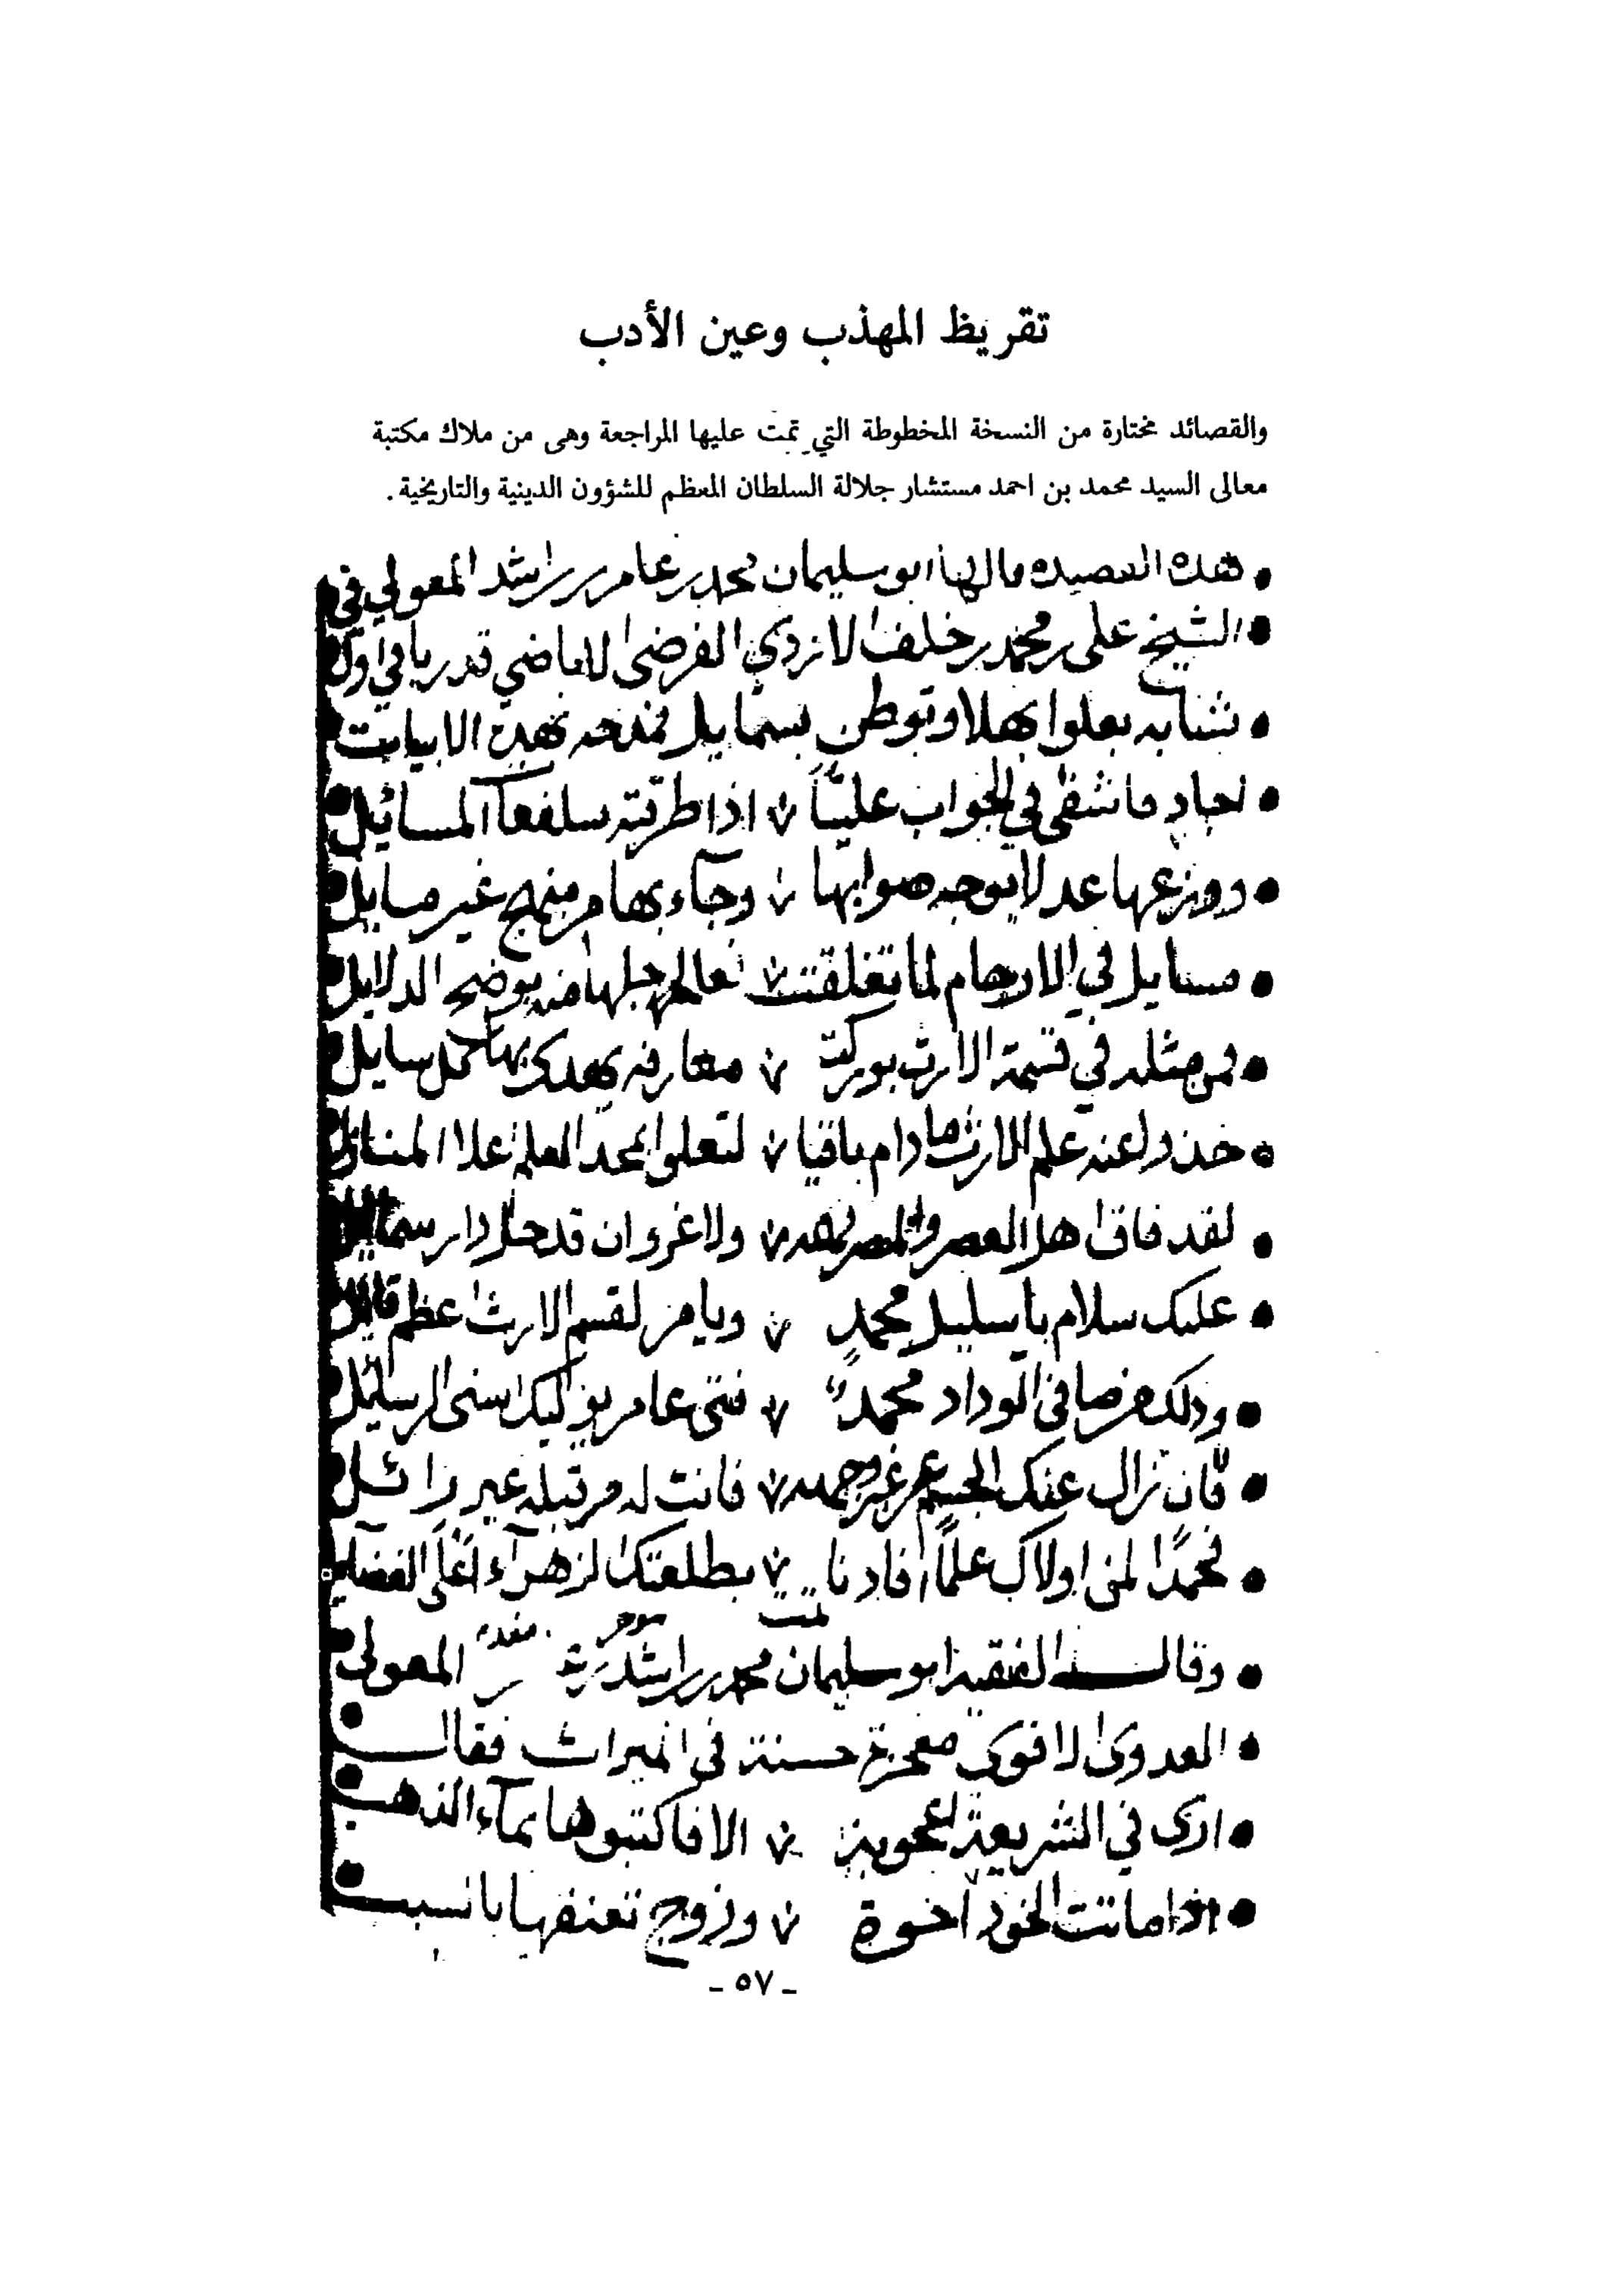 تقريظ المهذب وعين الأدب
والقصائد مختارة من النسخة المخطوطة التي تمت عليها المراجعة وهى من ملاك مكتبة
معالى السيد محمد بن احمد مستشار جلالة السلطان المعظم للشؤون الدينية والتاريخية .
هذه القصيده قالها ابو سليمان محمد بن عامر بن راشد المعولي في
الشيخ علي بن محمد بن خلف الازدي الفرضي الاباضي قد ربا في اول
شبابه بعلوا بهلا وتوطن بسمايل فمدحه بهذه الابيات
اجاد فاشفى في الجواب عليّاً اذا طرقته المسائل
عدلا بوجه صوابها وجآء بها من منهج غير مايل
مسايل في الارحام لما تغلقت منه بوضح الدلايل
فمن مثله في قسمة الارث بوركت معارفه بها كل سايل
خذ عنه علم الارث ما دام باقيا لتعلوا بمجد العلم اعلا المنازل
لقد فاق هذا العصر والمصر ولا غرو ان قد حل دار سمايل
عليك سلام يا سليل محمدٍ ويا من لقسم الارث اعظم
في الوداد محمدٌ فتى عامر اسنى الرسائل
فان زال عنك الجسم عن غير فانت له من قبله غير زائل
لمن اولاك علمًا افادنا بطلعتك الزهرآء الفضايل
تمت
وقال الفقير ابو سليمان محمد بن راشد المعولي
العدوي حسنة في الميراث فقال
ارى في الشريعة اعجوبة الا فاكتبوها بمآء الذهب
اذا ماتت الخود اخوة وزوج بالنسب
- ٥٧ -